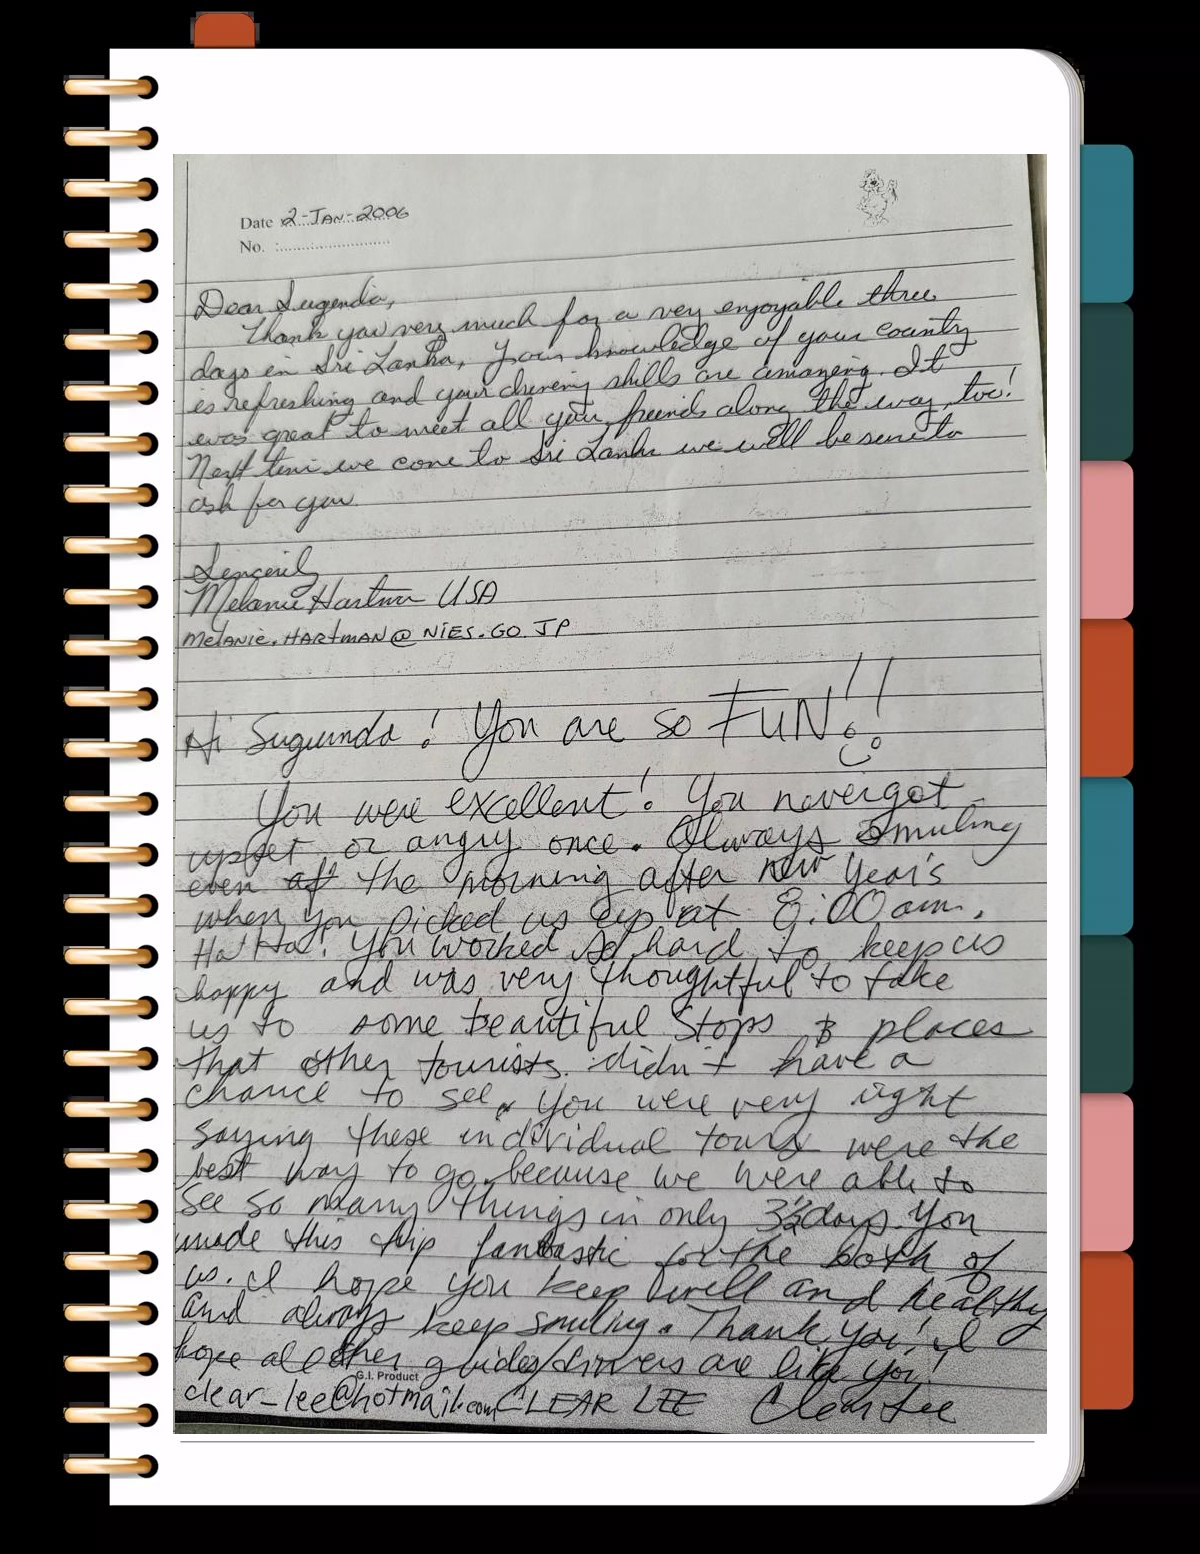 Date 2-JAN-2006
No.
Dear Sugenda,
Thank you very much for a very enjoyable three
days in Sri Lanka, Your knowledge of your country
is refreshing and your driving skills are amazing. It
was great to meet all you friends along the way, too!
Next time we come to Sri Lanka we will be sure to
ask for you.
Sincerily
Melanie Hartman USA
MELANIE.HARTMAN@NIES.GO.JP
Hi Sugunda! You are so FUN!!
You were excellent! You never got
upset or angry once. Always smiling
even at the morning after new Year's
when you picked us up at 8:00am.
Ha! Ha! You worked so hard to keep us
happy and was very thoughtful to take
us to some beautiful stops & places
that other tourists didn't have a
chance to see. You were very right
saying these individual tours were the
best way to go because we were able to
see so many things in only 3½ days. You
made this trip fantastic for the both of
us. I hope you keep well and healthy
and always keep smiling. Thank you! I
hope all other guides/drivers are like you!
G.I. Product
clear_lee@hotmail.com CLEAR LEE Clear Lee